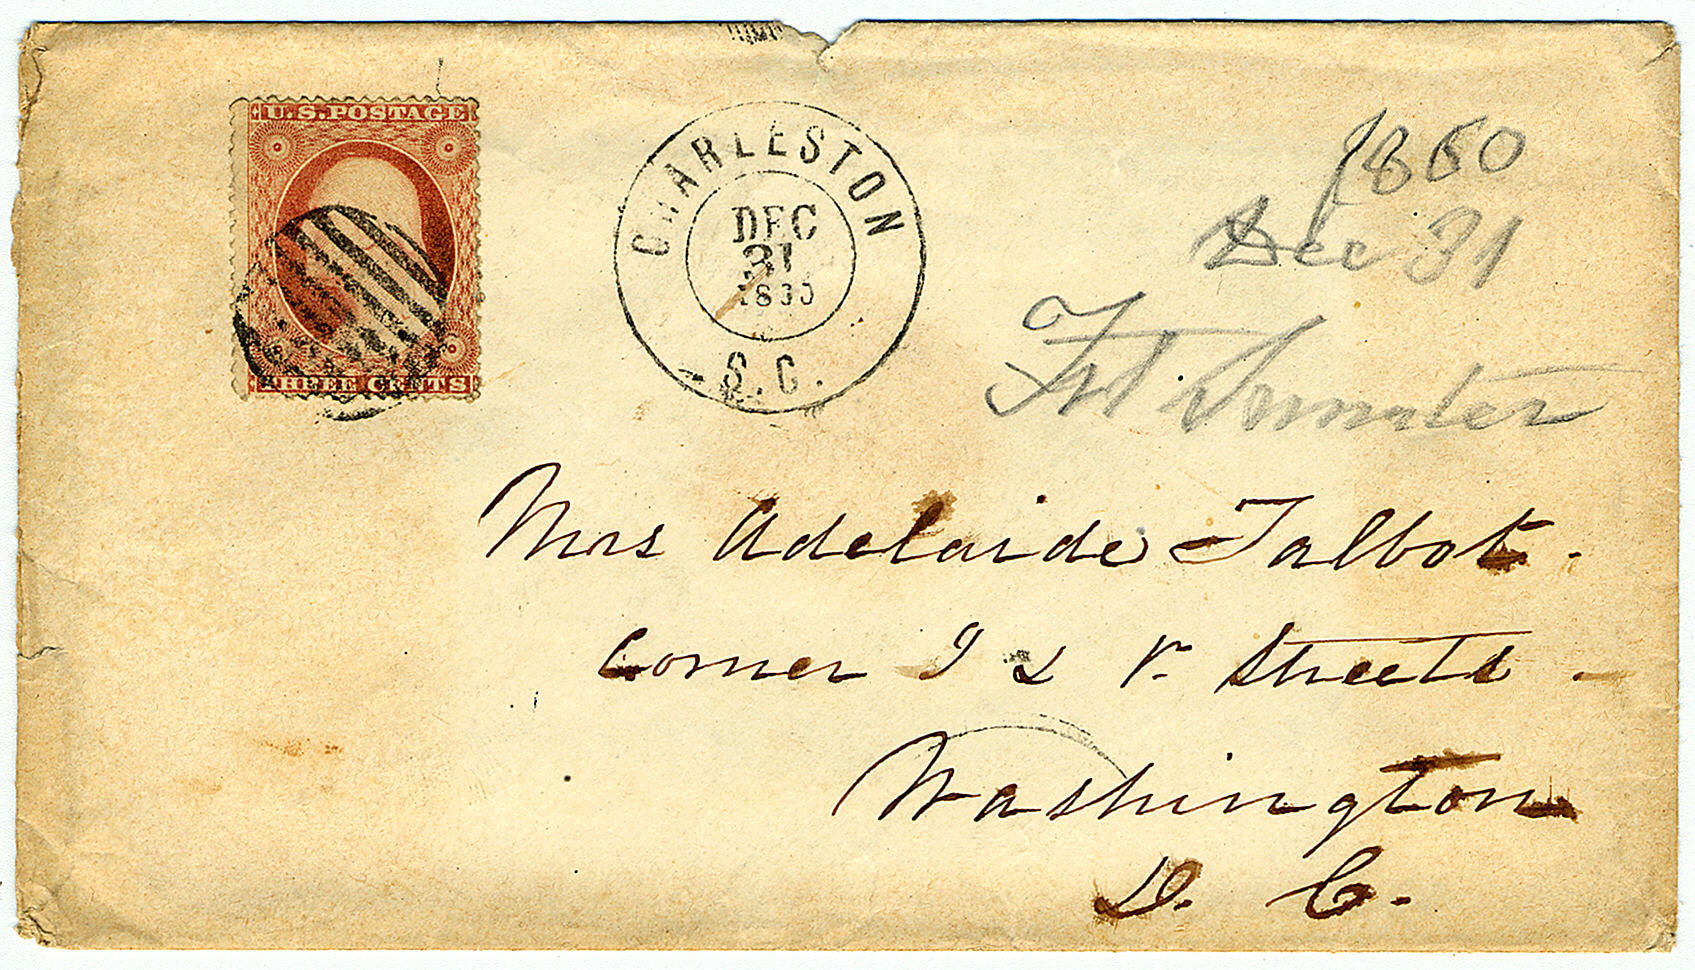 U.S. POSTAGE
THREE CENTS
CHARLESTON
DEC
31
1860
S.C.
1860
Dec 31
Ft Sumter
Mrs Adelaide Talbot.
Corner I & Streets.
Washington
D. C.